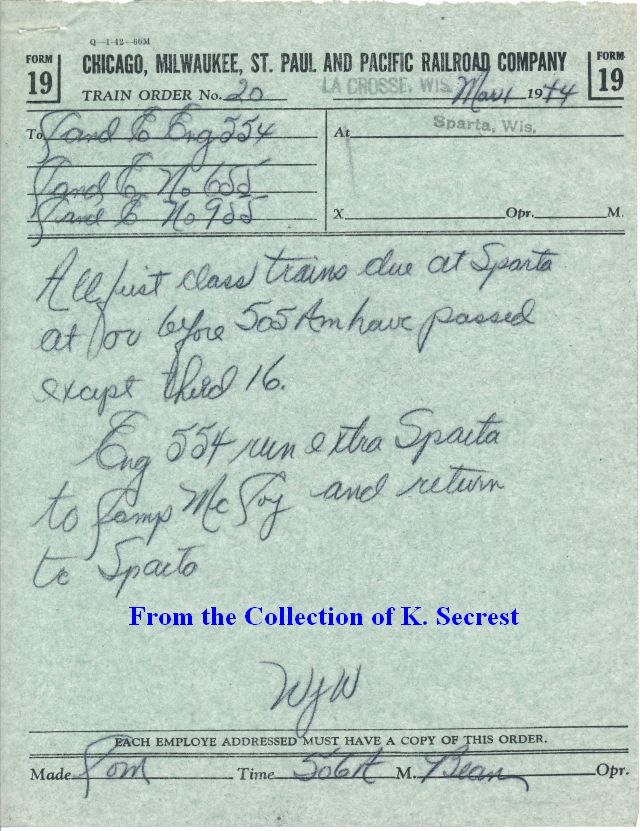 Q—1-42—60M
FORM 19
CHICAGO, MILWAUKEE, ST. PAUL AND PACIFIC RAILROAD COMPANY
FORM 19
TRAIN ORDER No. 20 LA CROSSE, WIS. Mar 1 1944
To C and E Eng 554 At Sparta, Wis.
C and E No 655
C and E No 955 X. Opr. M.
All first class trains due at Sparta
at or before 505 Am have passed
except third 16.
Eng 554 run extra Sparta
to Camp McCoy and return
to Sparta
From the Collection of K. Secrest
WJW
EACH EMPLOYE ADDRESSED MUST HAVE A COPY OF THIS ORDER.
Made Com Time 506A M. Bean Opr.